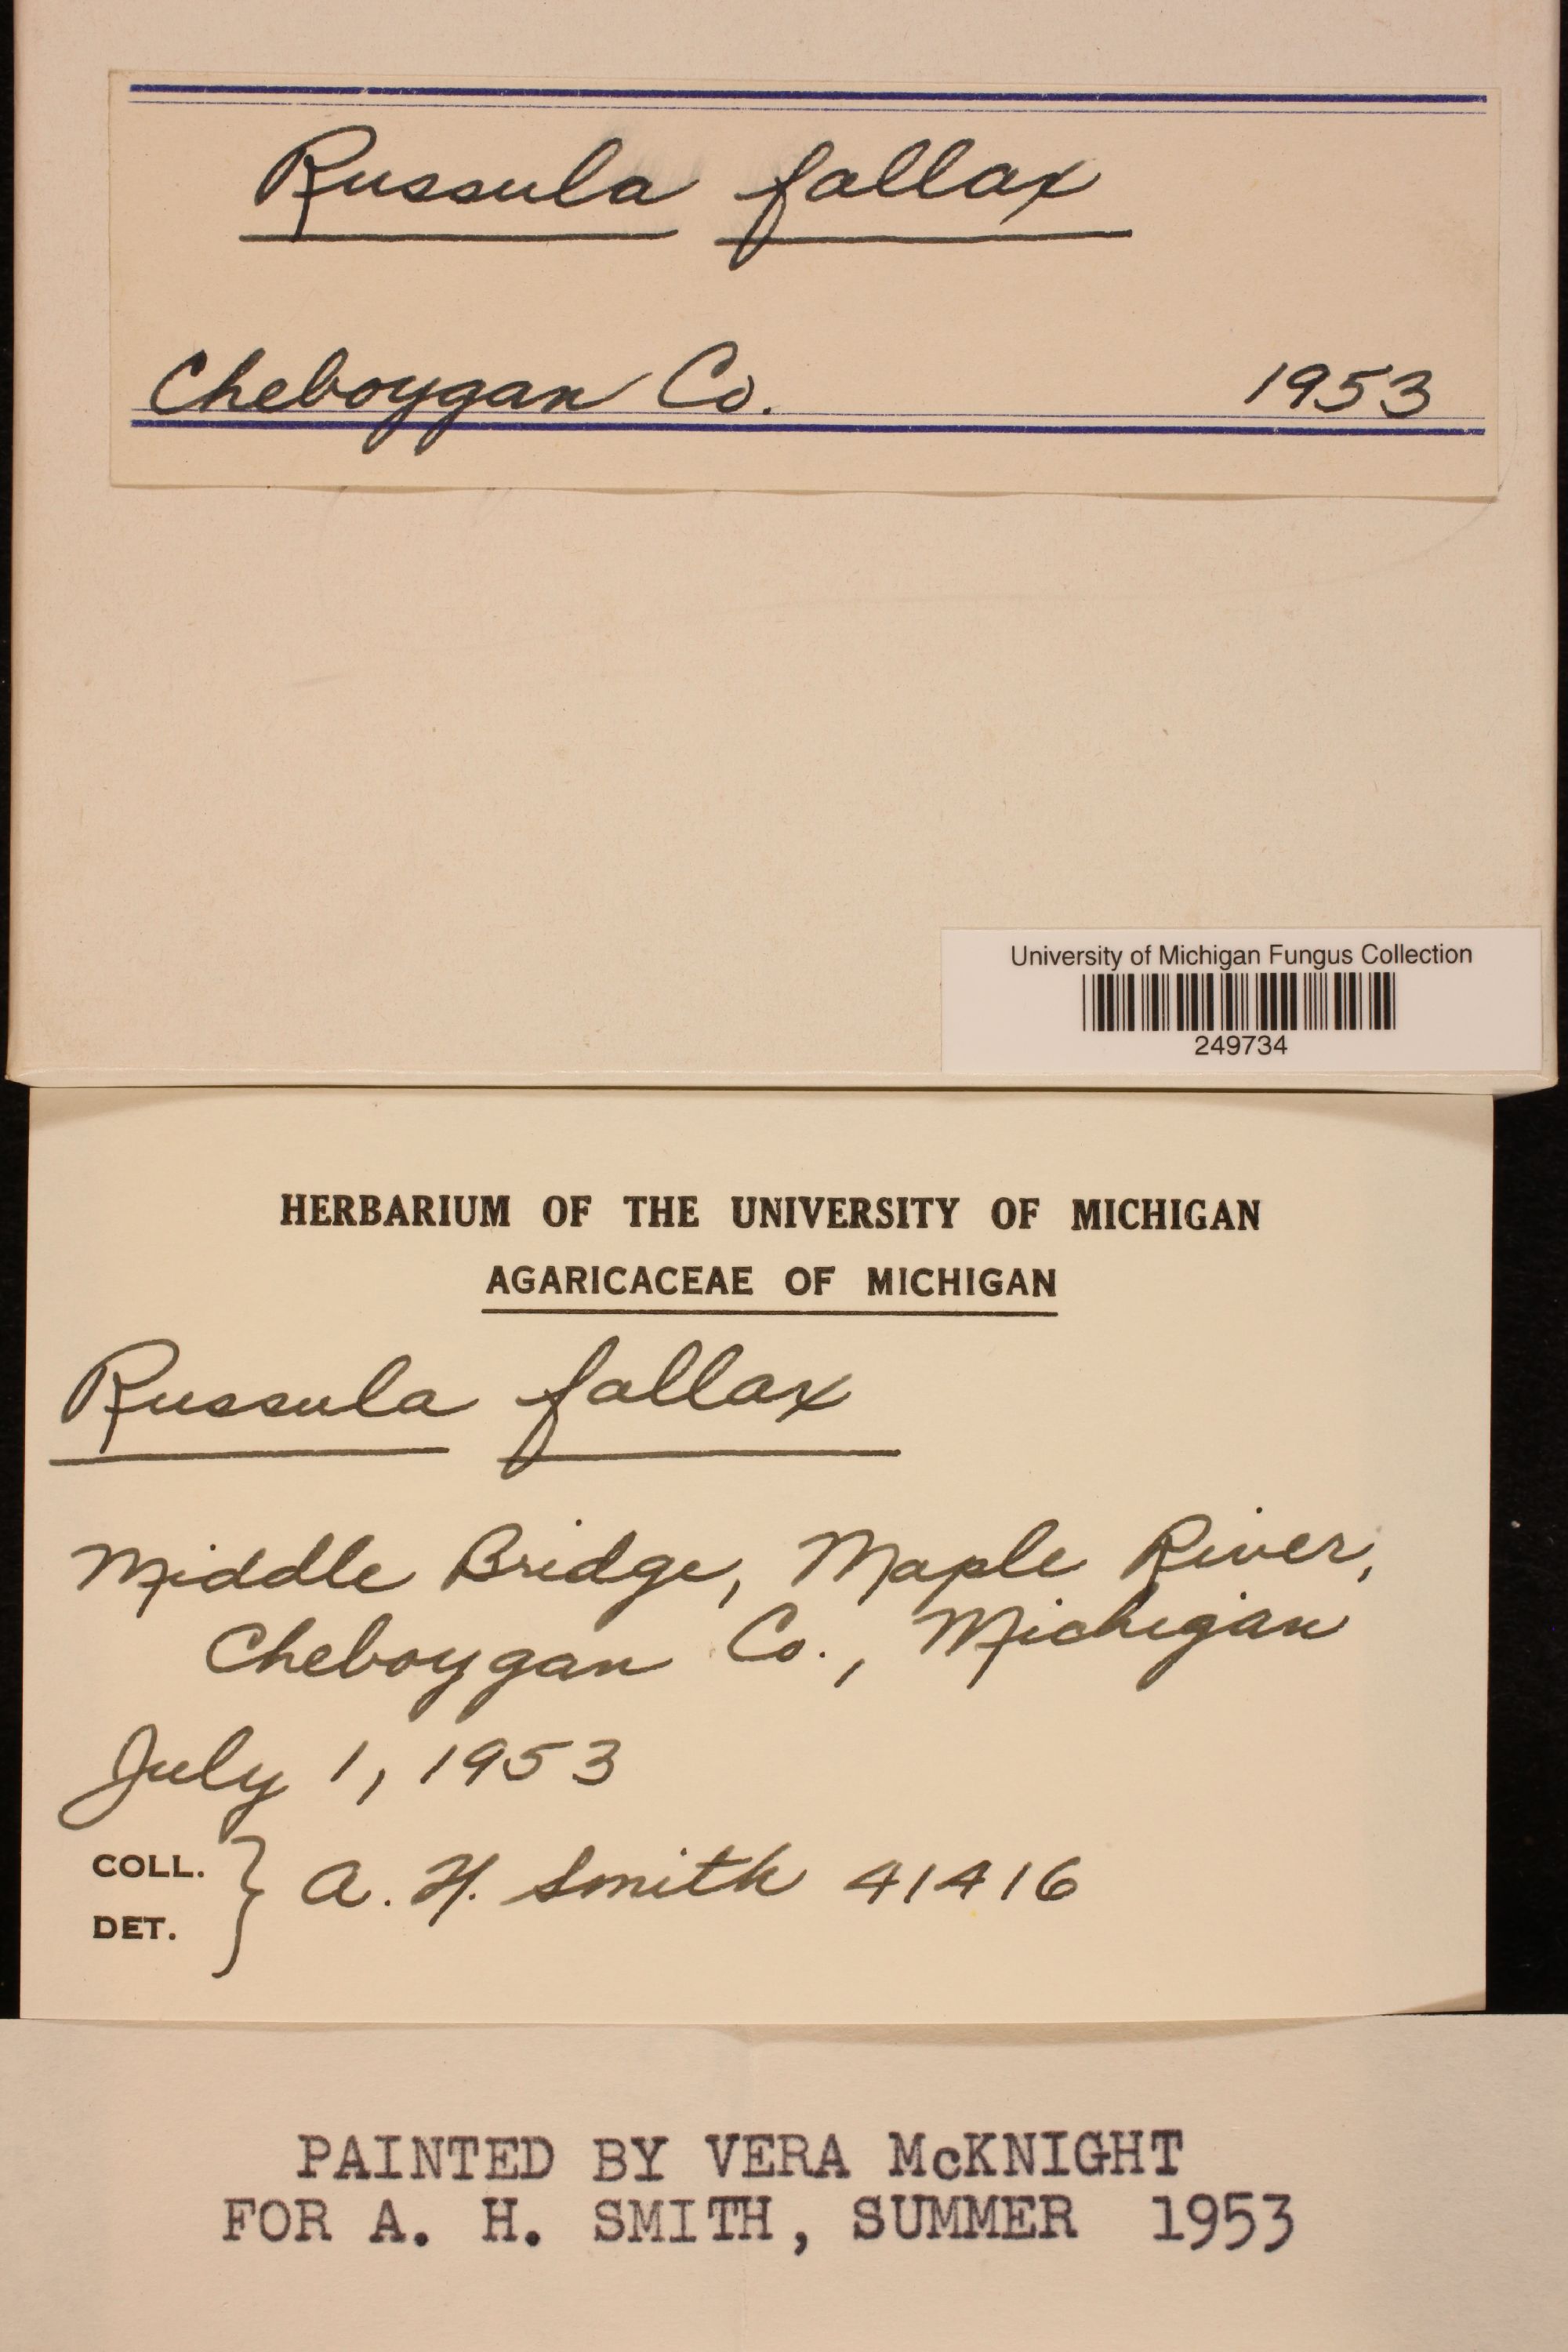 Russula fallax
Cheboygan Co. 1953
University of Michigan Fungus Collection
249734
HERBARIUM OF THE UNIVERSITY OF MICHIGAN
AGARICACEAE OF MICHIGAN
Russula fallax
Middle Bridge, Maple River,
Cheboygan Co., Michigan
July 1, 1953
COLL. } A. H. Smith 41416
DET.
PAINTED BY VERA McKNIGHT
FOR A. H. SMITH, SUMMER 1953